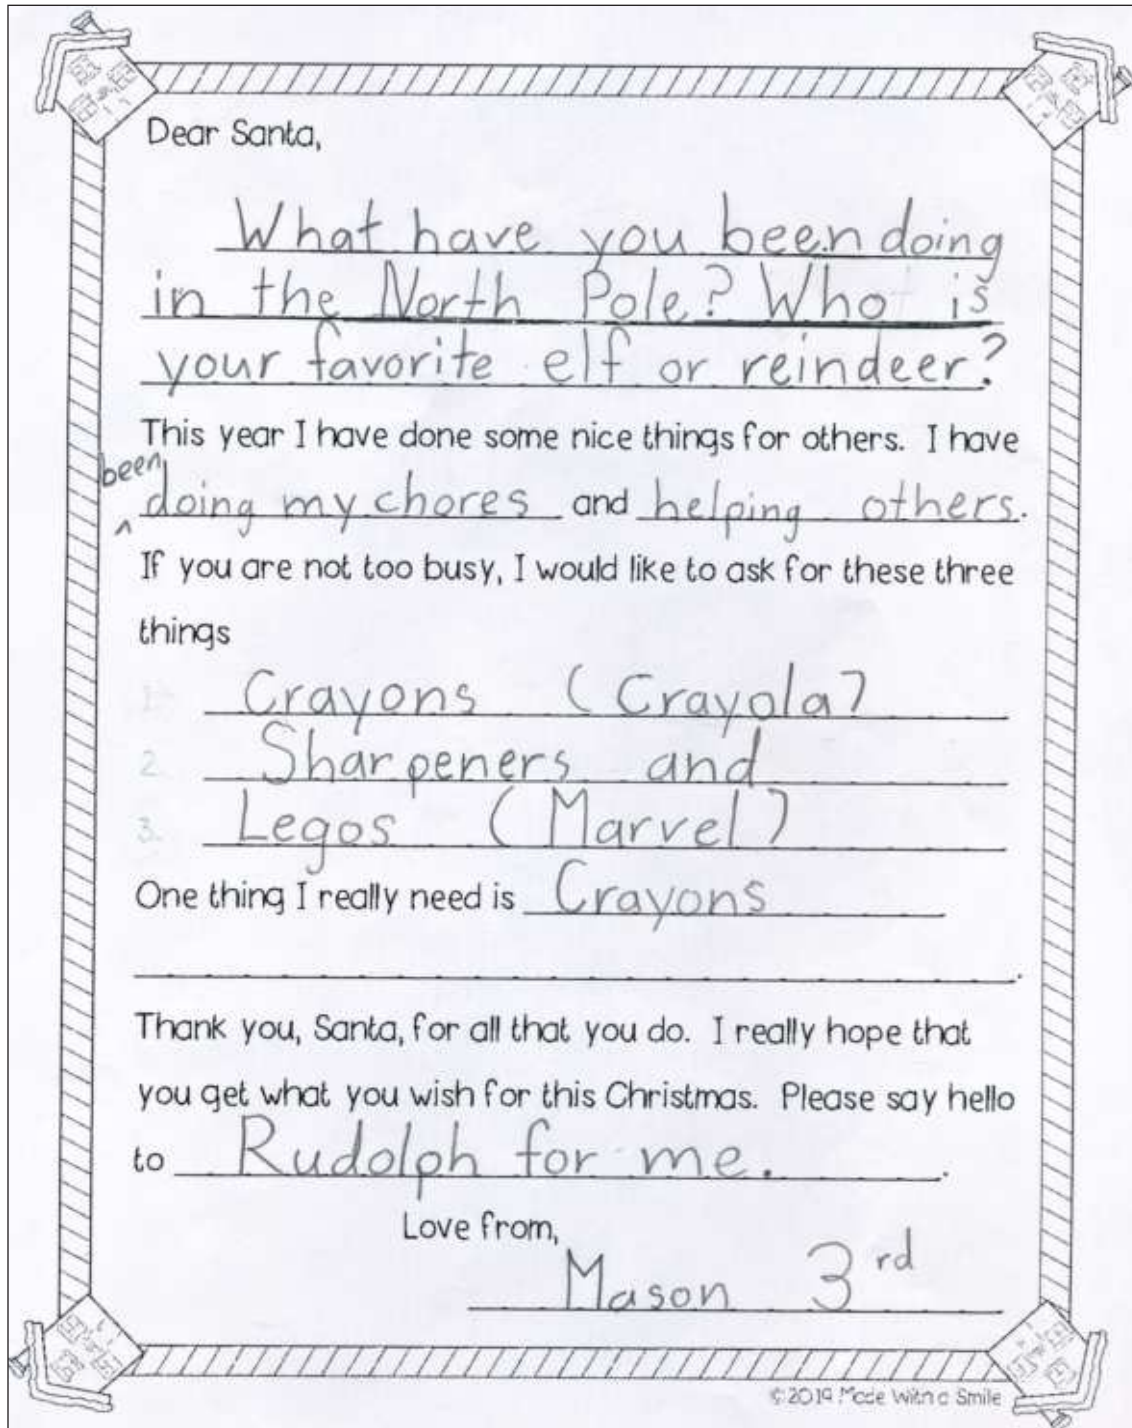 Dear Santa,
What have you been doing
in the North Pole? Who is
your favorite elf or reindeer?
This year I have done some nice things for others. I have
been
doing my chores and helping others.
^
If you are not too busy, I would like to ask for these three
things
1. Crayons (Crayola)
2. Sharpeners and
3. Legos (Marvel)
One thing I really need is Crayons
.
Thank you, Santa, for all that you do. I really hope that
you get what you wish for this Christmas. Please say hello
to Rudolph for me. .
Love from,
Mason 3rd
©2019 Made With a Smile